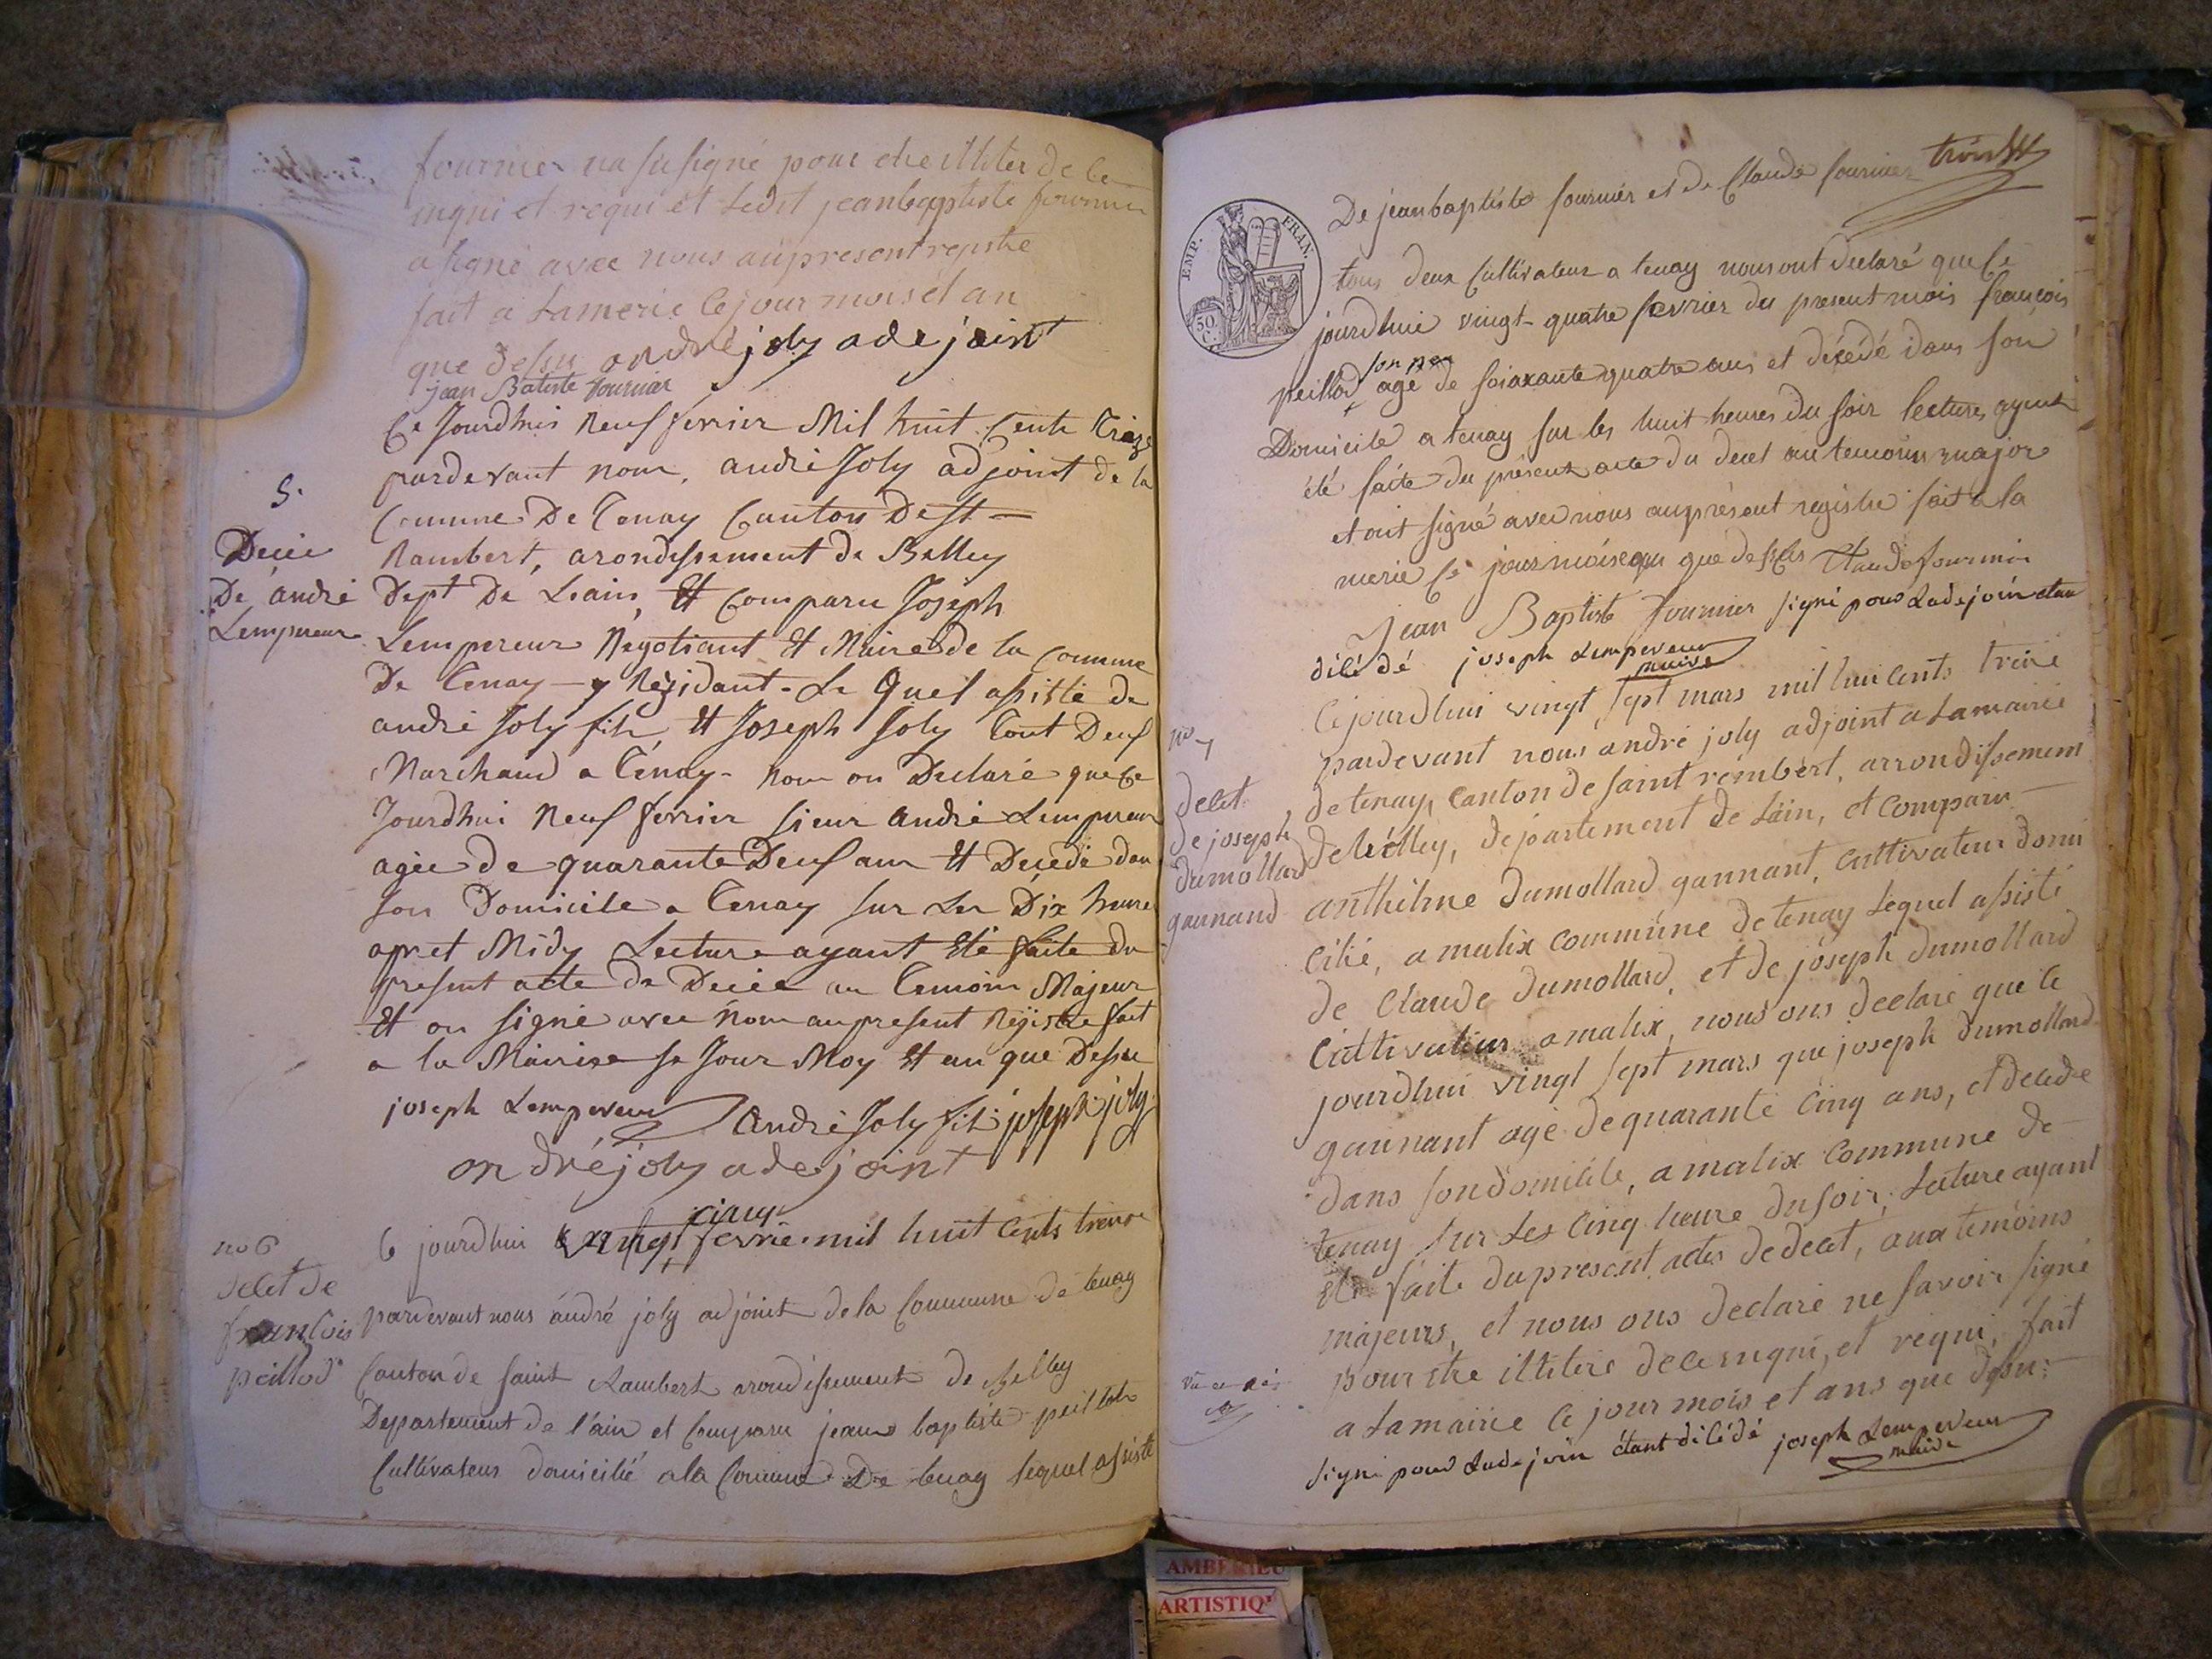 fournier na su signé pour etre illiter de ce
inqui et requi et Ledit jeanbaptiste fournier
a signé avec nous aupresent registre
fait a Lamerie Ce jour mois et an
que dessu andré joly ade joint
jean Batiste fournier
Ce Jourdhui Neuf fevrier Mil huit Cents Trèze
pardevant nous, andré Joly adjoint de la
5.
Commune De Tenay Canton De St =
Decée
Rambert, arondissement de Belley
De andré
Dept De Leain, Et Comparu Joseph
Lempereur
Lempereur Négotiant Et Maire de la Commune
De Tenay - y Résidant - Le Quel assisté de
andré Joly fils, Et Joseph Joly Tout Deuf
Marchand a Tenay - nous on Declaré que Ce
Jourdhui Neuf fevrier sieur andré Lempereur
agée de quarante Deuf ans Et Decédé dan
son Domicile a Tenay sur Les Dix heure
apret Midy Lecture ayant Eté faite du
present acte de Decée au Temoin Majeur
Et on signé avec Nous au present Régistre fait
a la Mairise se Jour Moy Et an que Dessu
joseph Lempereur André Joly fils joseph joly
andré joly ade joint
no 6
Ce jourdhui vingt cinq fevrie mil huit Cents treize
decet de
françois
pardevant nous andré joly adjoint de la Commune de tenay
peillod
Canton de saint Rambert arondissement de Belley
Departement de l'ain et Comparu jean baptiste peillod
Cultivateur domicilié a la Commune De tenay lequel assisté
EMP. FRAN.
50 C.
De jeanbaptiste fournier et de Claude fournier
tous deux Cultivateur a tenay nous ont declaré que Ce
jourdhui vingt-quatre fevrier du present mois françois
son per
peillod agé de soixante quatre ans et décédé dans son
Domicile a tenay sur les huit heures du soir lectures ayent
été faite du présent acte du decet au temoins major
et ont signé avec nous auprésent régistre fait a la
merie Ce jour mois et an que dessus Claude fournier
Jean Baptiste fournier signé pour Ladejoin etan
décédé joseph Lempereur
maire
Ce jourdhui vingt sept mars mil huit Cents treize
no 7
pardevant nous andré joly adjoint a Lamairie
decet
de tenay, Canton de saint rembert, arrondissement
de joseph
de bélley, departement de Lain, et Comparu -
dumollard
gannand
anthelme dumollard gannant, Cultivateur domi
Cilié, a malix Commune de tenay Lequel assisté
de Claude dumollard, et de joseph dumollard
Cultivateur a malix, nous ons declaré que Ce
jourdhui vingt sept mars que joseph dumollard
gannant agé de quarante Cinq ans, et décédé
dans son domicile, a malix Commune de
tenay sur Les Cinq heure du soir, Lecture ayant
Eté faite du present actes de decet, aux temoins
majeurs, et nous ons declaré ne savoir signé
pour etre illitere de ce enqui, et requi, fait
a Lamairie Ce jour mois et ans que dessu:
signé pour Ladejoin étant décédé joseph Lempereur
maire
AMBÉRIEU
ARTISTIQ